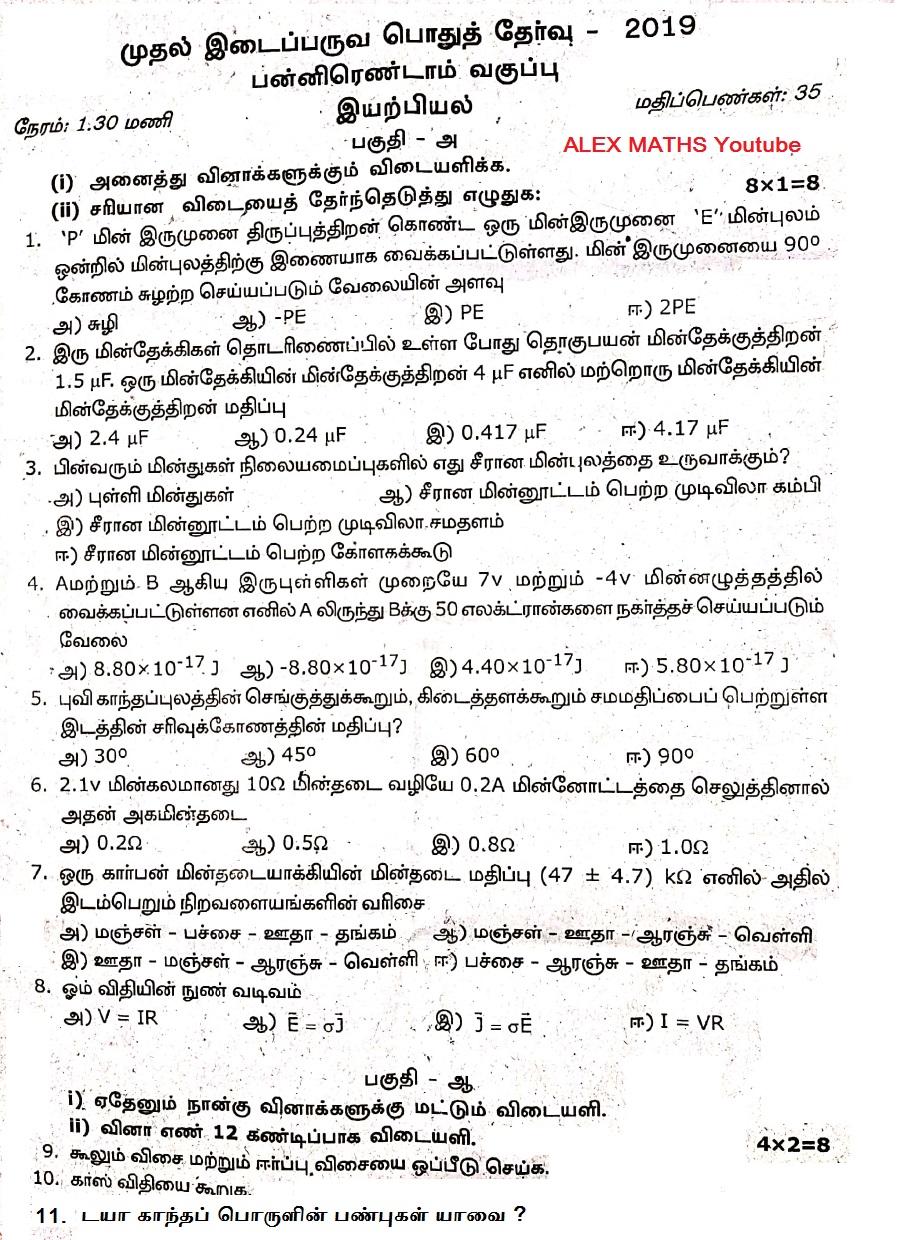 முதல் இடைப்பருவ பொதுத் தேர்வு - 2019
பன்னிரெண்டாம் வகுப்பு
இயற்பியல்
நேரம்: 1.30 மணி
மதிப்பெண்கள்: 35
பகுதி - அ
ALEX MATHS Youtube
(i) அனைத்து வினாக்களுக்கும் விடையளிக்க.
(ii) சரியான விடையைத் தேர்ந்தெடுத்து எழுதுக: 8×1=8
1. 'P' மின் இருமுனை திருப்புத்திறன் கொண்ட ஒரு மின்இருமுனை 'E' மின்புலம்
ஒன்றில் மின்புலத்திற்கு இணையாக வைக்கப்பட்டுள்ளது. மின் இருமுனையை 90⁰
கோணம் சுழற்ற செய்யப்படும் வேலையின் அளவு
அ) சுழி ஆ) -PE இ) PE ஈ) 2PE
2. இரு மின்தேக்கிகள் தொடரிணைப்பில் உள்ள போது தொகுபயன் மின்தேக்குத்திறன்
1.5 μF. ஒரு மின்தேக்கியின் மின்தேக்குத்திறன் 4 μF எனில் மற்றொரு மின்தேக்கியின்
மின்தேக்குத்திறன் மதிப்பு
அ) 2.4 μF ஆ) 0.24 μF இ) 0.417 μF ஈ) 4.17 μF
3. பின்வரும் மின்துகள் நிலையமைப்புகளில் எது சீரான மின்புலத்தை உருவாக்கும்?
அ) புள்ளி மின்துகள் ஆ) சீரான மின்னூட்டம் பெற்ற முடிவிலா கம்பி
இ) சீரான மின்னூட்டம் பெற்ற முடிவிலா சமதளம்
ஈ) சீரான மின்னூட்டம் பெற்ற கோளகக்கூடு
4. Aமற்றும் B ஆகிய இருபுள்ளிகள் முறையே 7v மற்றும் -4v மின்னழுத்தத்தில்
வைக்கப்பட்டுள்ளன எனில் A லிருந்து Bக்கு 50 எலக்ட்ரான்களை நகர்த்தச் செய்யப்படும்
வேலை
அ) 8.80×10⁻¹⁷ J ஆ) -8.80×10⁻¹⁷J இ) 4.40×10⁻¹⁷J ஈ) 5.80×10⁻¹⁷ J
5. புவி காந்தப்புலத்தின் செங்குத்துக்கூறும், கிடைத்தளக்கூறும் சமமதிப்பைப் பெற்றுள்ள
இடத்தின் சரிவுக்கோணத்தின் மதிப்பு?
அ) 30⁰ ஆ) 45⁰ இ) 60⁰ ஈ) 90⁰
6. 2.1v மின்கலமானது 10Ω மின்தடை வழியே 0.2A மின்னோட்டத்தை செலுத்தினால்
அதன் அகமின்தடை
அ) 0.2Ω ஆ) 0.5Ω இ) 0.8Ω ஈ) 1.0Ω
7. ஒரு கார்பன் மின்தடையாக்கியின் மின்தடை மதிப்பு (47 ± 4.7) kΩ எனில் அதில்
இடம்பெறும் நிறவளையங்களின் வரிசை
அ) மஞ்சள் - பச்சை - ஊதா - தங்கம் ஆ) மஞ்சள் - ஊதா - ஆரஞ்சு - வெள்ளி
இ) ஊதா - மஞ்சள் - ஆரஞ்சு - வெள்ளி ஈ) பச்சை - ஆரஞ்சு - ஊதா - தங்கம்
8. ஓம் விதியின் நுண் வடிவம்
அ) V = IR ஆ) E⃗ = σJ⃗ இ) J⃗ = σE⃗ ஈ) I = VR
பகுதி - ஆ
i) ஏதேனும் நான்கு வினாக்களுக்கு மட்டும் விடையளி.
ii) வினா எண் 12 கண்டிப்பாக விடையளி. 4×2=8
9. கூலும் விசை மற்றும் ஈர்ப்பு விசையை ஒப்பீடு செய்க.
10. காஸ் விதியை கூறுக.
11. டயா காந்தப் பொருளின் பண்புகள் யாவை ?